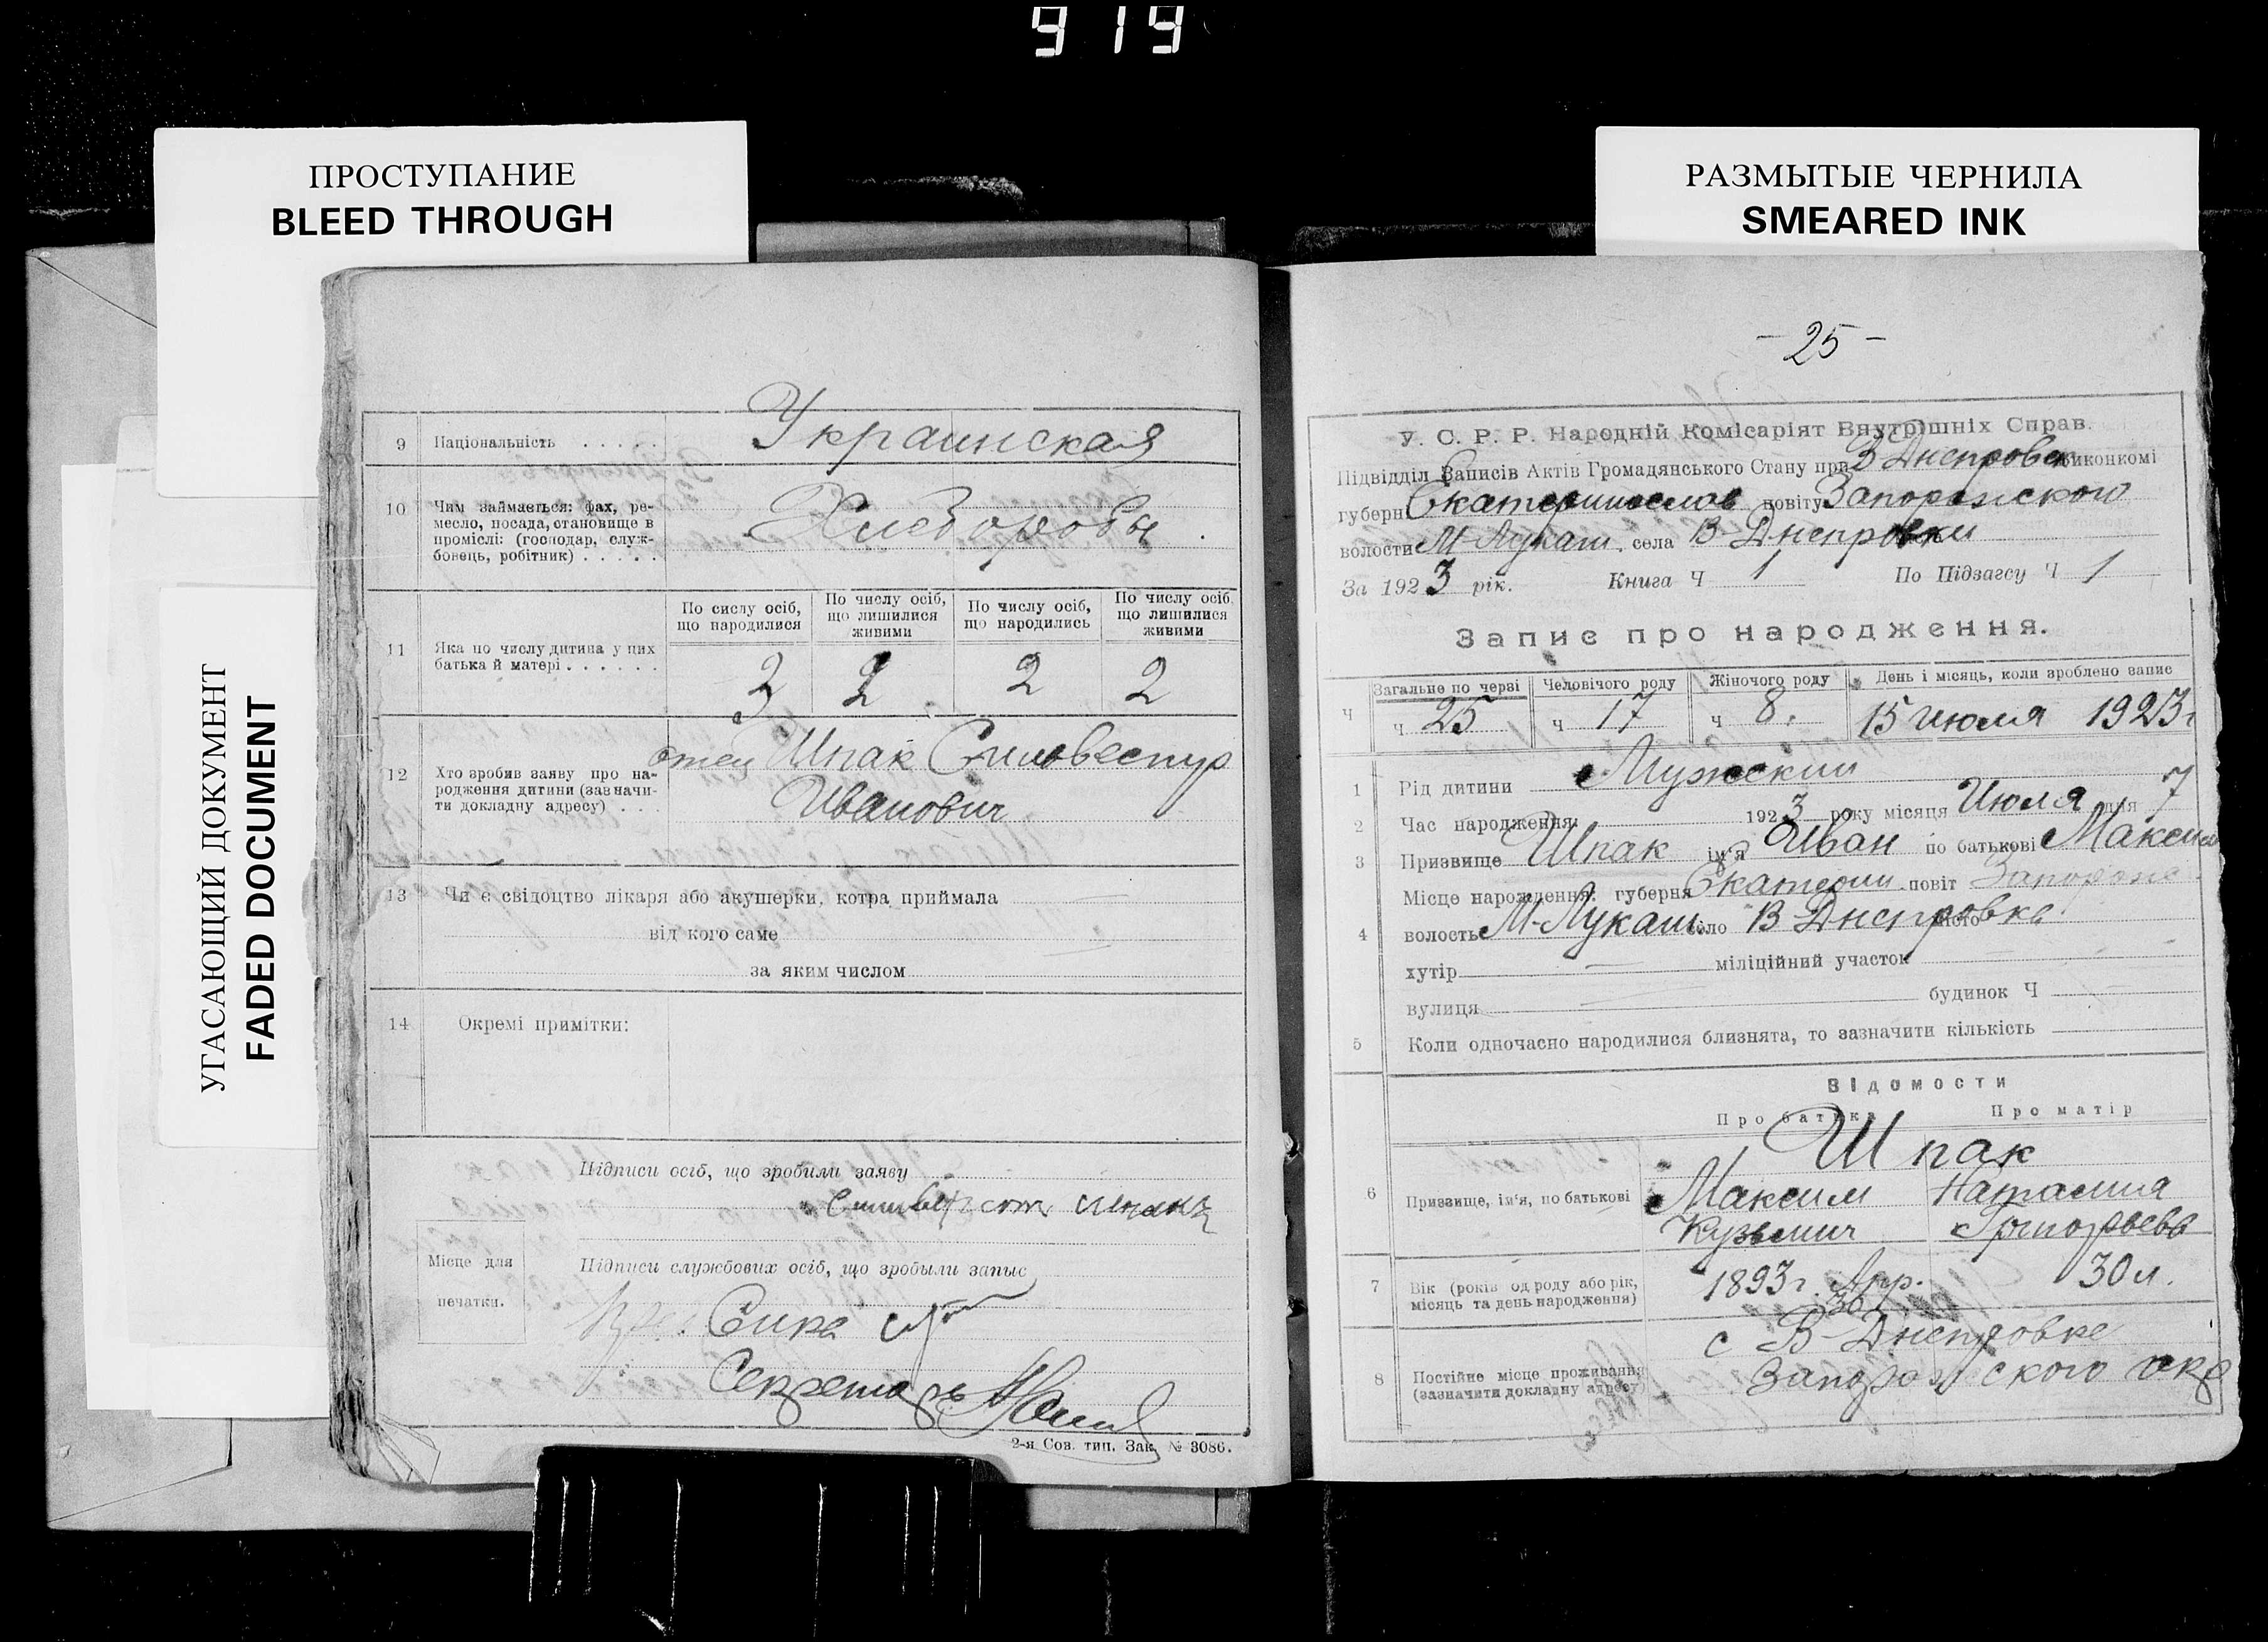 919
ПРОСТУПАНИЕ
BLEED THROUGH
РАЗМЫТЫЕ ЧЕРНИЛА
SMEARED INK
УГАСАЮЩИЙ ДОКУМЕНТ
FADED DOCUMENT
9 Національність . . . . . Украинская
10 Чим займається: фах, ре-
месло, посада, становище в
проміслі: (господар, служ-
бовець, робітник) . . . . . Хлеборобы
11 Яка по числу дитина у цих
батька й матері . . . . . .
По сислу осіб,
що народилися
По числу осіб,
що лишилися
живими
По числу осіб,
що народились
По числу осіб
що лишилися
живими
3 2 2 2
12 Хто зробив заяву про на-
родження дитини (зазначи-
ти докладну адресу) . . .
отец Шпак Силовестур
Иванович
13 Чи є свідоцтво лікаря або акушерки, котра приймала
від кого саме
за яким числом
14 Окремі примітки:
Підписи осіб, що зробили заяву
Місце для
печатки.
Підписи службових осіб, що зробыли запыс
Секретарь
2-я Сов. тип. Зак. № 3086.
- 25 -
У. С. Р. Р. Народній Комісаріят Внутрішніх Справ.
Підвідділ Записів Актів Громадянського Стану при В Днепровск виконкомі
губерн Екатеринослав повіту Запорожского
волости М-Лукаш. села В-Днепровки
За 1923 рік. Книга Ч 1 По Підзагсу Ч 1
Запис про народження.
Ч Загальне по черзі Человічого роду Жіночого роду День і місяць, коли зроблено запис
ч 25 ч 17 ч 8. 15 июля 1923 г
1 Рід дитини Мужский
2 Час народження: 1923 року місяця Июля дня 7
3 Призвище Шпак ім'я Иван по батькові Максим
4 Місце народження: губерня Екатерин. повіт Запорож.
волость М-Лукаш. село В-Днепровке
хутір міліційний участок
вулиця будинок Ч
5 Коли одночасно народилися близнята, то зазначити кількість
Відомости
Про батька Про матір
Шпак
6 Призвище, ім'я, по батькові Максим Наталия
Кузьмич Григорьева
7 Вік (років од роду або рік,
місяць та день народження) 1893 г. Апр. 30 л.
8 Постійне місце проживання
(зазначити докладну адресу)
с В-Днепровке
Запорожского окр